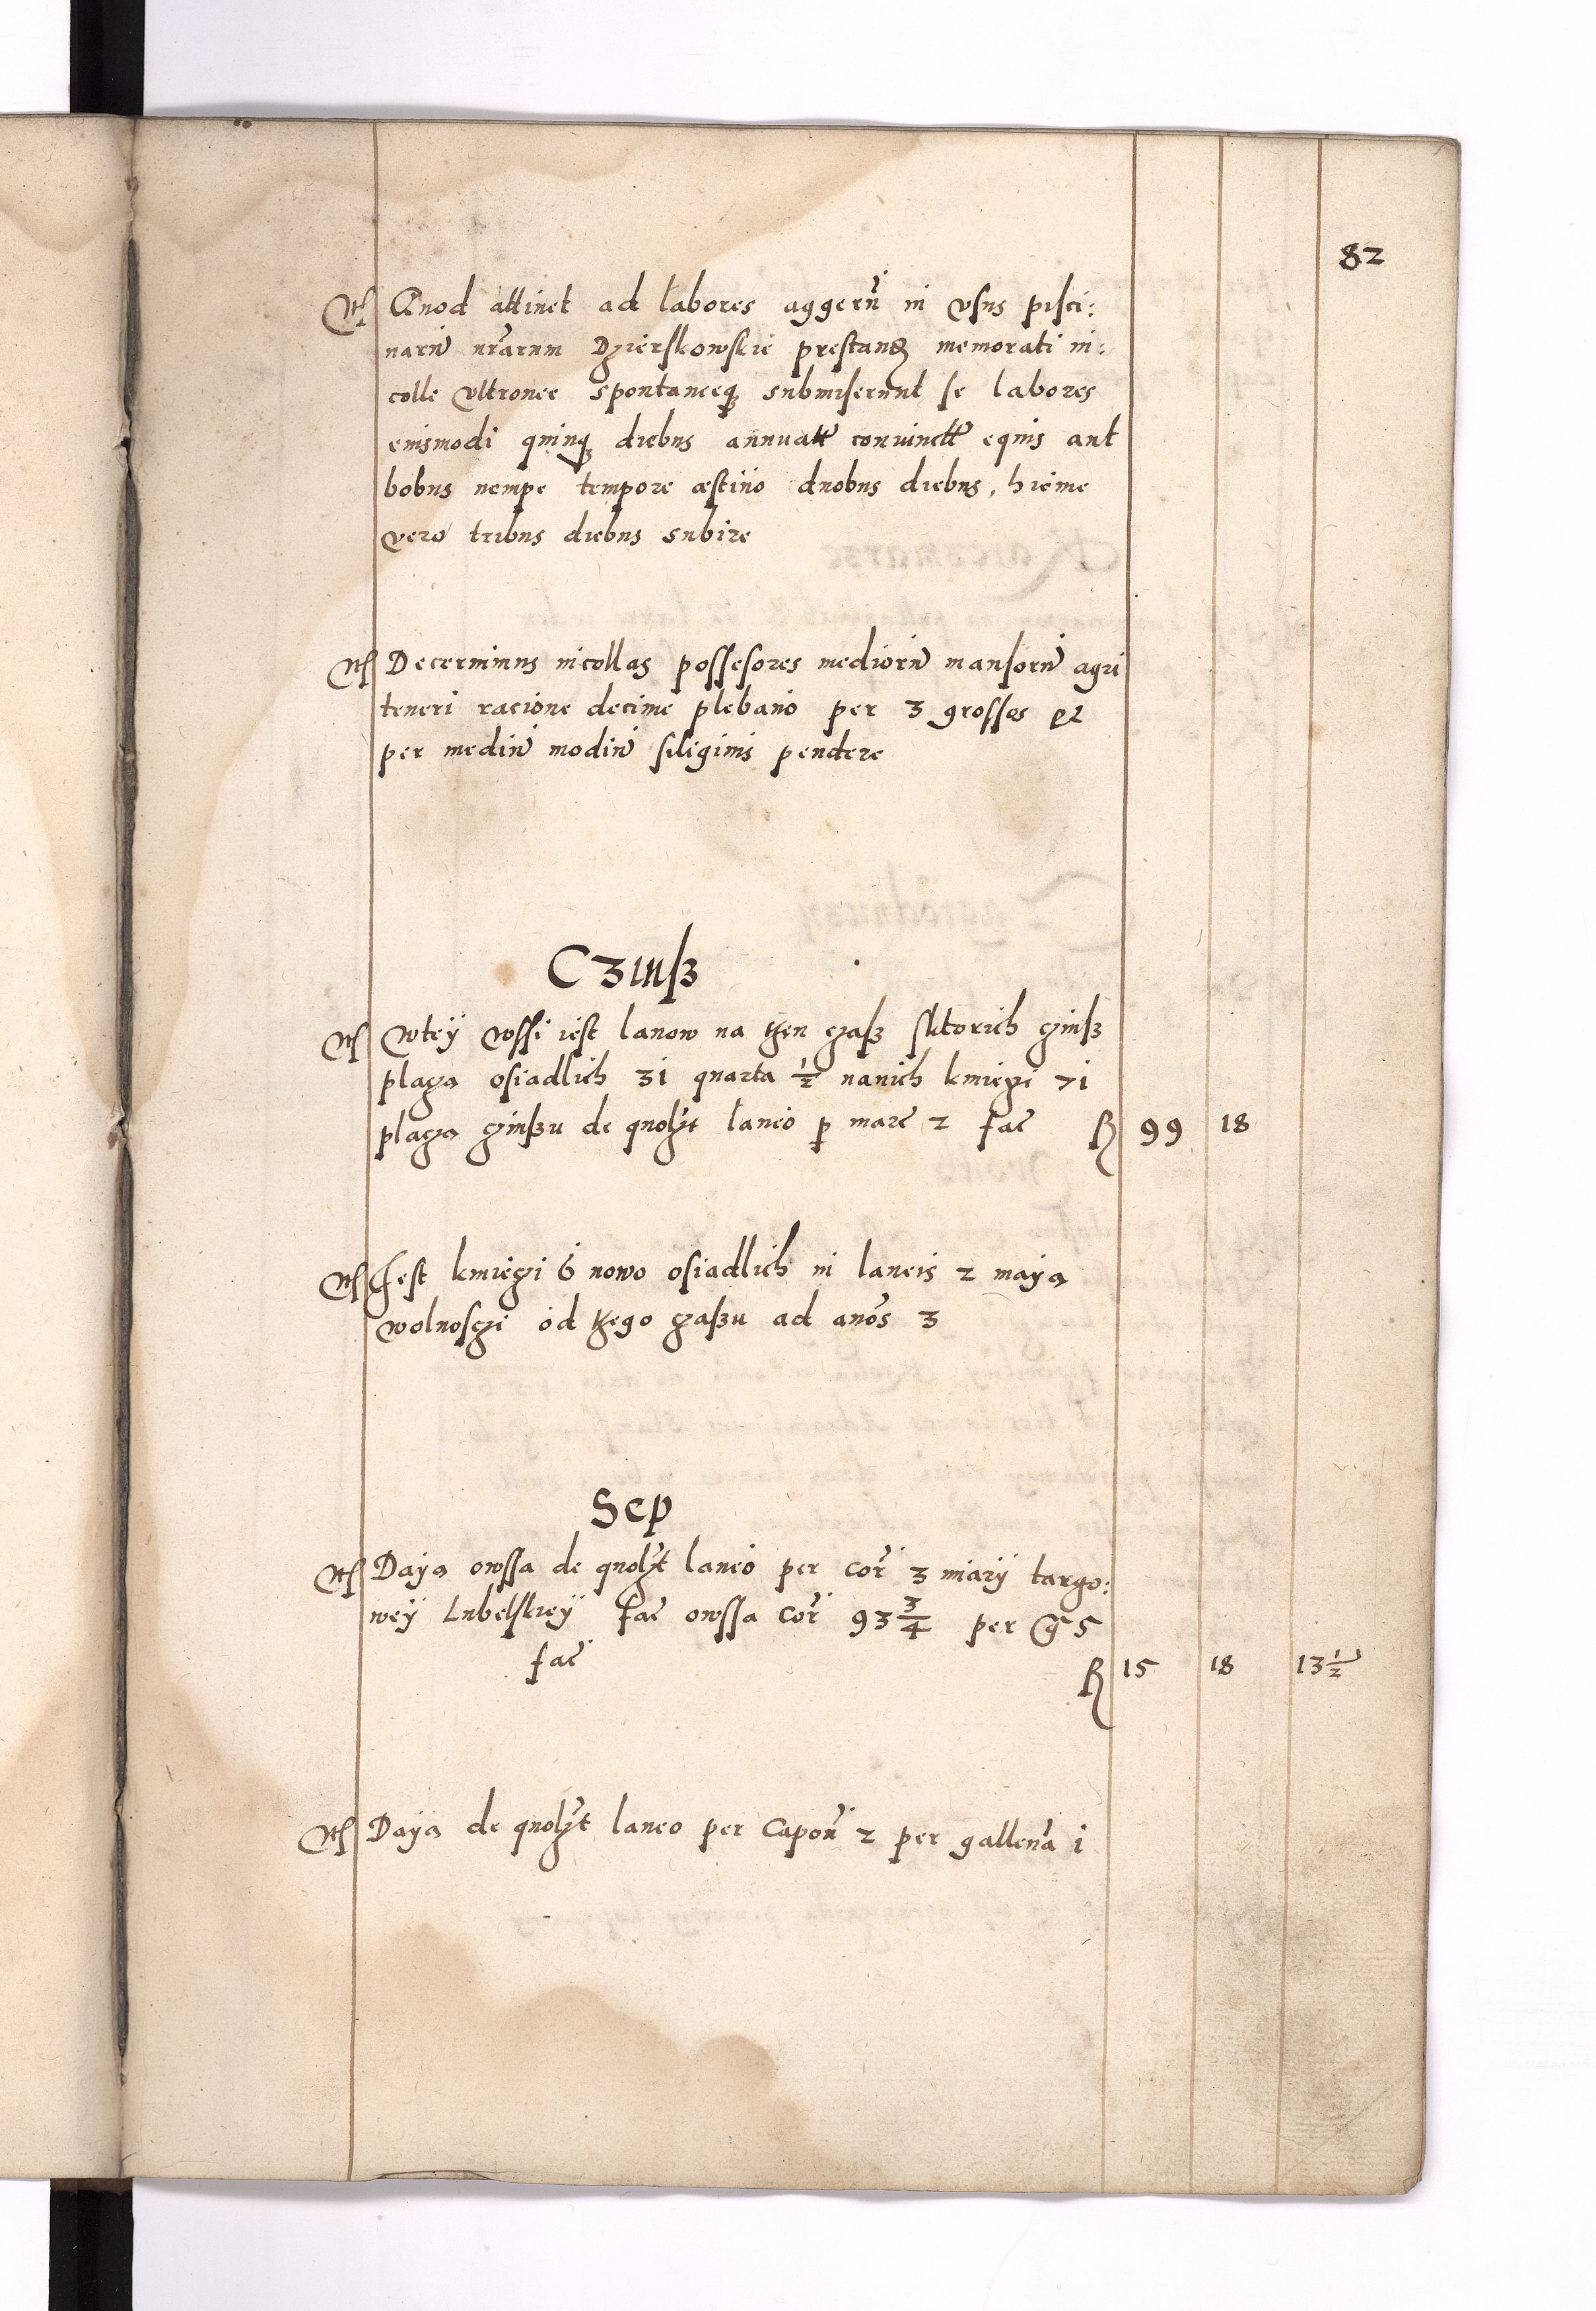 82
Itē Quod attinet ad labores aggerū in vsus pisci:
narū nr̃arum Dzierskowskie prestandȝ memorati in:
colle vltronee spontaneeqȝ submiserunt se labores
eiusmodi quinqȝ diebus annuatȓ coniunctȓ equis aut
bobus nempe tempore æstiuo duobus diebus, hieme
vero tribus diebus subire
Itē Decernimus incollas possesores mediorū mansorū agri
teneri racione decime plebano per 3 grosses et
per mediū modiū siliginis pendere
Czinß
Itē wtey wssi iest lanow na ten czaß sktorich czinß
placza osiadlich 31 quarta ½ nanich kmieczi 71
placza czinßu de quolȝt laneo p marc̃ 2 fac̃ R 99 18
Itē Jest kmieczi 6 nowo osiadlich in laneis 2 maya
wolnosczi od tego czaßu ad anos̃ 3
Sep
Itē Daya owssa de quolȝt laneo per cor̃ 3 miary targo:
wey Lubelskiey fac̃ owssa cor̃ 93¾ per g̃ 5
fac̃ R 15 18 13½
Itē Daya de quolȝt laneo per Capoñ 2 per gallena 1